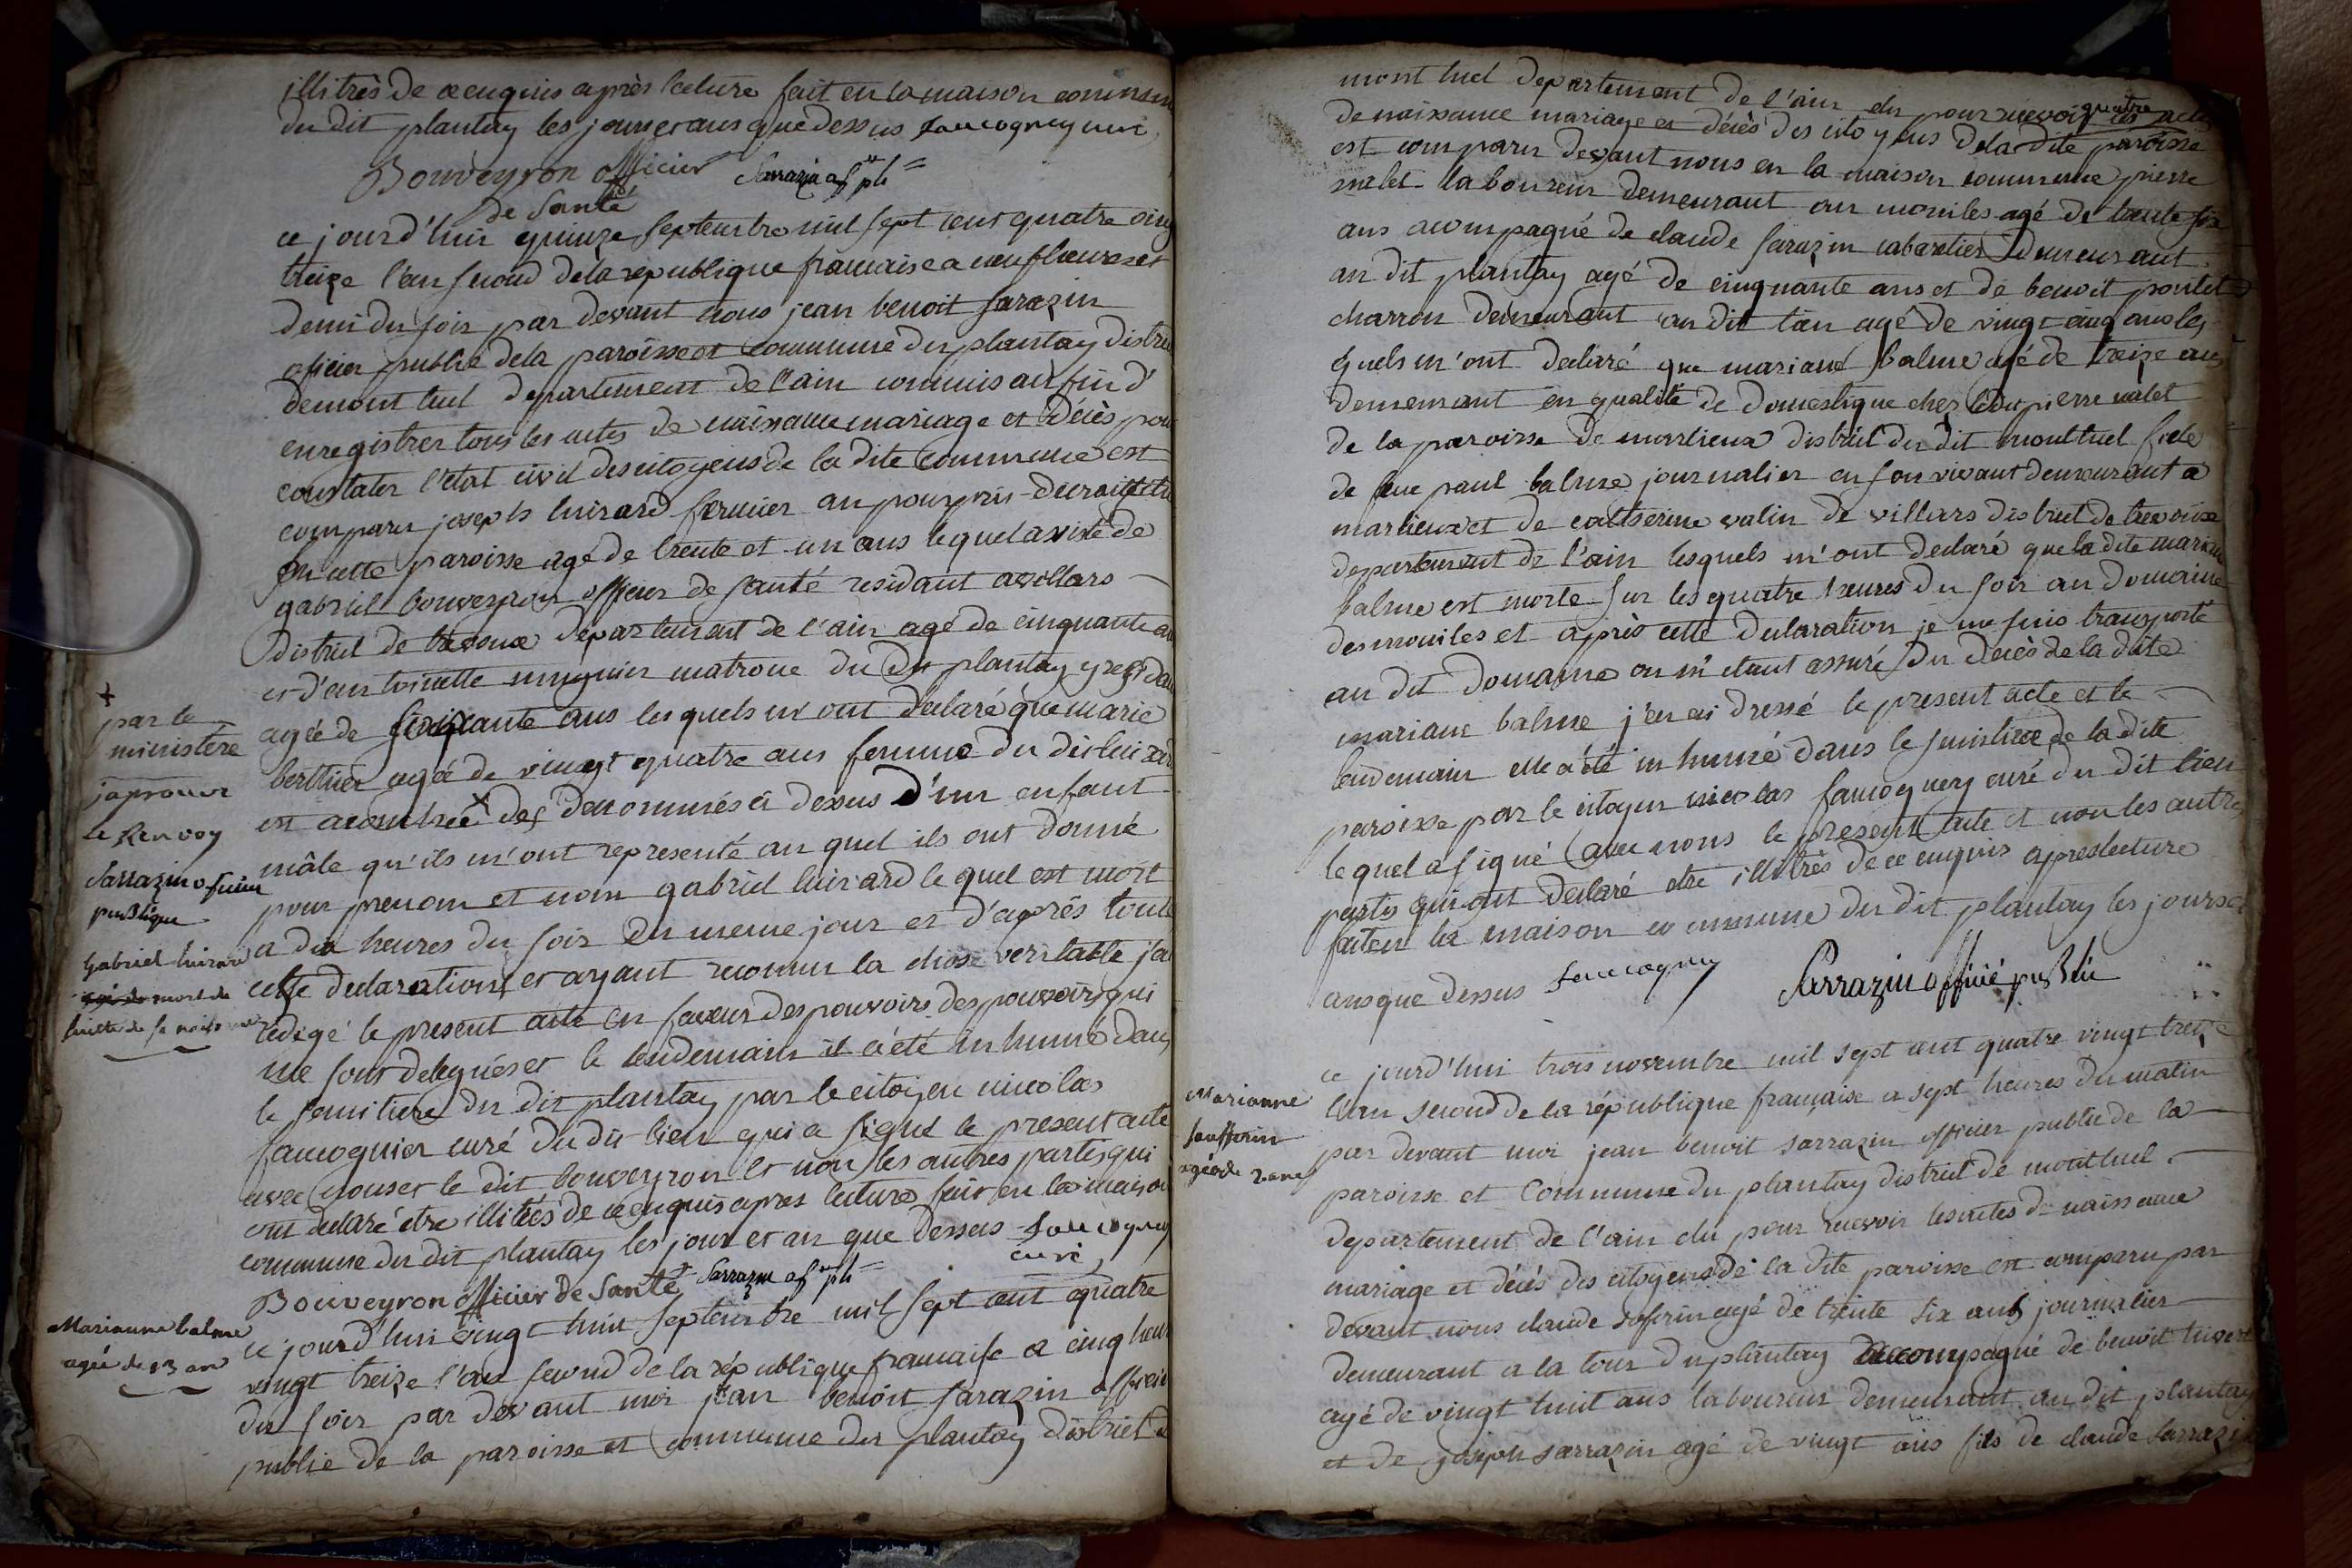 illitrès de ce enquis après lecture fait en la maison commun
du dit plantay les jour et ans que dessus faucogney curé
Bouveyron officier Sarrazin off pb
de Santé
ce jourd'huis quinze septembre mil sept cent quatre ving
treize l'an second de la republique francaise a neuf heures et
demi du soir par devant nous jean benoit sarazin
officier public de la paroisse et commune du plantay distri
demont luel departement de l'ain commis au fin d'
enregistrer tous les actes de naissance mariage et décès pour
constater l'etat civil des citoyens de la dite commune est
comparu joseph luirard fermier au pourpris
en cette paroisse agé de trente et un ans lequel assisté de
gabriel bouveyron officier de santé residant a villars
district de trevoux departement de l'ain agé de cinquante an
et d'antoinette matrone du dit plantay y resida
agée de soixante ans lesquels m'ont déclaré que marie
berthier agée de vingt quatre ans femme du dit luirard
est acouchée des denommés ci dessus d'un enfant
mâle qu'ils m'ont representé au quel ils ont donné
pour prenom et nom gabriel luirard le quel est mort
a dix heures du soir du meme jour et d'après toute
cette declaration et ayant reconnu la chose veritable j'ai
redigé le present acte en faveur des pouvoirs des pouvoirs qui
me sont delegués et le lendemain il a été inhumé dans
le semitiere du dit plantay par le citoyen nicolas
faucognier curé du dit lieu qui a signé le present acte
avec nous et le dit bouveyron et non les autres partis qui
ont declaré etre illitrés de ce enquis apres lecture fait en la maison
commune du dit plantay les jour et an que dessus faucogney
curé
Bouveyron officier de Santé Sarrazin off pb
+
par le
ministère
japrouve
le Renvoy
Sarrazin oficier
publique
Gabriel luirard
mort de
suitte de sa naissance
Marianne balme
agée de 13 ans
ce jourd'hui vingt huit septembre mil sept cent quatre
vingt treize l'an second de la république francaise a cinq heur
du soir par devant moi jean benoit sarazin officier
public de la paroisse et commune du plantay district d
mont luel departement de l'ain elu pour recevoir les actes
quatre
de naissance mariage et décès des citoyens de la dite paroisse
est comparu devant nous en la maison commune pierre
malet laboureur demeurant au mouiles agé de trente six
ans acompagné de claude sarazin cabaretier demeurant
au dit plantay agé de cinquante ans et de benoit poulet
charron demeurant au dit lieu agé de vingt cinq ans les
quels m'ont declaré que mariane balme agé de treize ans
demeurant en qualité de domestique chez ledit pierre malet
de la paroisse de marlieux district du dit montluel fiele
de feue paul balme journalier en son vivant demeurant a
marlieux et de catherine valin de villars district de trevoux
departement de l'ain lesquels m'ont declaré que la dite mariane
balme est morte sur les quatre heures du soir au domaine
des mouiles et après cette declaration je me suis transporté
au dit domaine ou m'etant assuré du decès de la dite
mariane balme j'en ai dressé le present acte et le
lendemain elle a été inhumé dans le semitiere de la dite
paroisse par le citoyen nicolas faucogney curé du dit lieu
le quel a signé avec nous le present acte et non les autres
partis qui ont declaré etre illitrés de ce enquis apres lecture
fait en la maison commune du dit plantay les jours et
ans que dessus faucogney Sarrazin officié publi
Marianne
soufferin
agée de 2 ans
ce jourd'hui trois novembre mil sept cent quatre vingt treize
l'an second de la république française a sept heures du matin
par devant moi jean benoit sarrazin officier public de la
paroisse et commune du plantay district de montluel
departement de l'ain elu pour recevoir les actes de naissance
mariage et décés des citoyens de la dite paroisse est comparu par
devant nous claude soferin agé de trente six ans journalier
demeurant a la tour du plantay accompagné de benoit
agé de vingt huit ans laboureur demeurant au dit plantay
et de joseph sarrazin agé de vingt ans fils de claude sarrazin